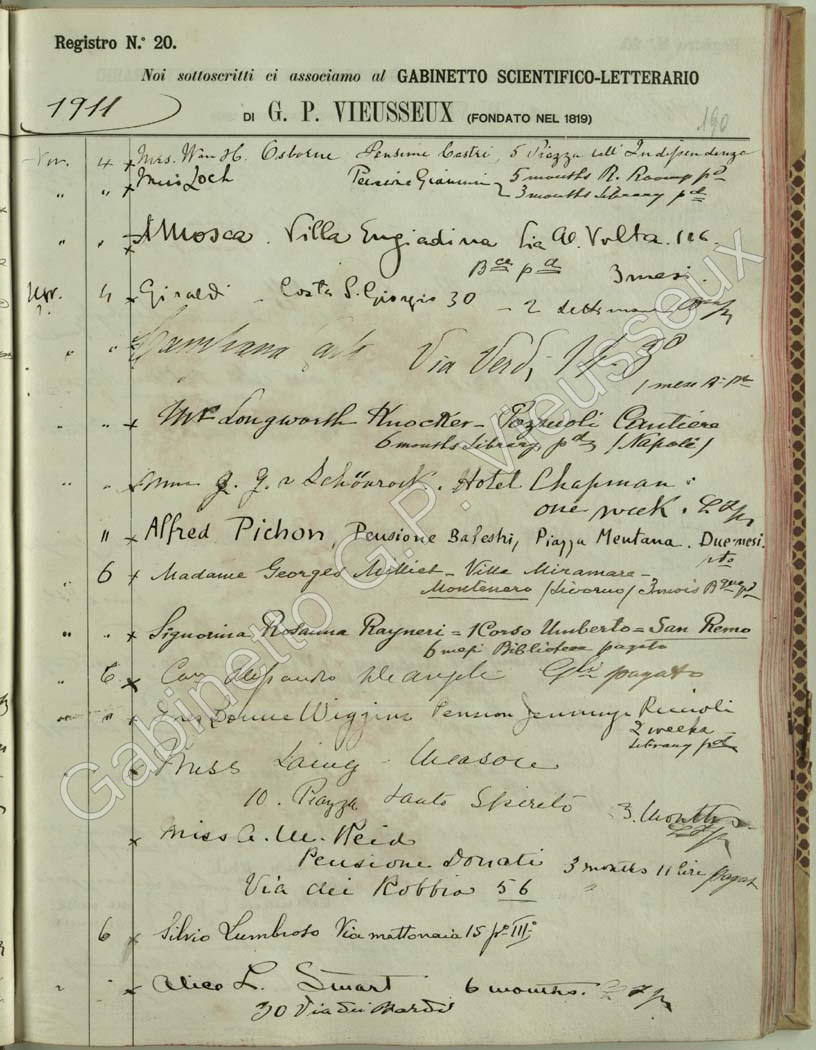 Registro N.° 20.
Noi sottoscritti ci associamo al GABINETTO SCIENTIFICO-LETTERARIO
1911
DI G. P. VIEUSSEUX (FONDATO NEL 1819)
190
Nov. 4 x Mrs. Wm H. Osborne Pensione Castri, 5 Piazza dell' Independenza
" " x Miss Loch Pensione Giannini 5 months R. Room pd
3 months Library pd
" " x AMosca. Villa Engiadina Via Al. Volta.
3 mesi.
4 x Giraldi - Costa S. Giorgio 30 - 2 settimane
" " Via Verdi,
1 mese
" " x Mr Longworth Knocker - Pozzuoli Cantiere
6 months Library pd (Napoli)
" " x Schönrock. Hotel Chapman:
one week.
" x Alfred Pichon, Pensione Balestri, Piazza Mentana. Due mesi.
pto
" 6 x Madame Georges Milliet - Villa Miramare -
Montenero (Livorno) 3 mois
" " x Signorina Rosanna Rayneri = 1 Corso Umberto = San Remo
6 mesi Biblioteca pagato
" 6 x Cav. Alessandro De Angeli pagato
" x Wiggins Pension Jennings Riccioli
2 weeks
Library pd
x Miss Laing Meason
10. Piazza Santo Spirito 3. Months
x Miss A. M. Reid
Pensione Donati 3 months 11 lire
Via dei Robbia 56
6 x Silvio Lumbroso Via Mattonaia 15 po III°
" x Alice L. Smart 6 months.
30 Via dei Bardi
Gabinetto G.P. Vieusseux